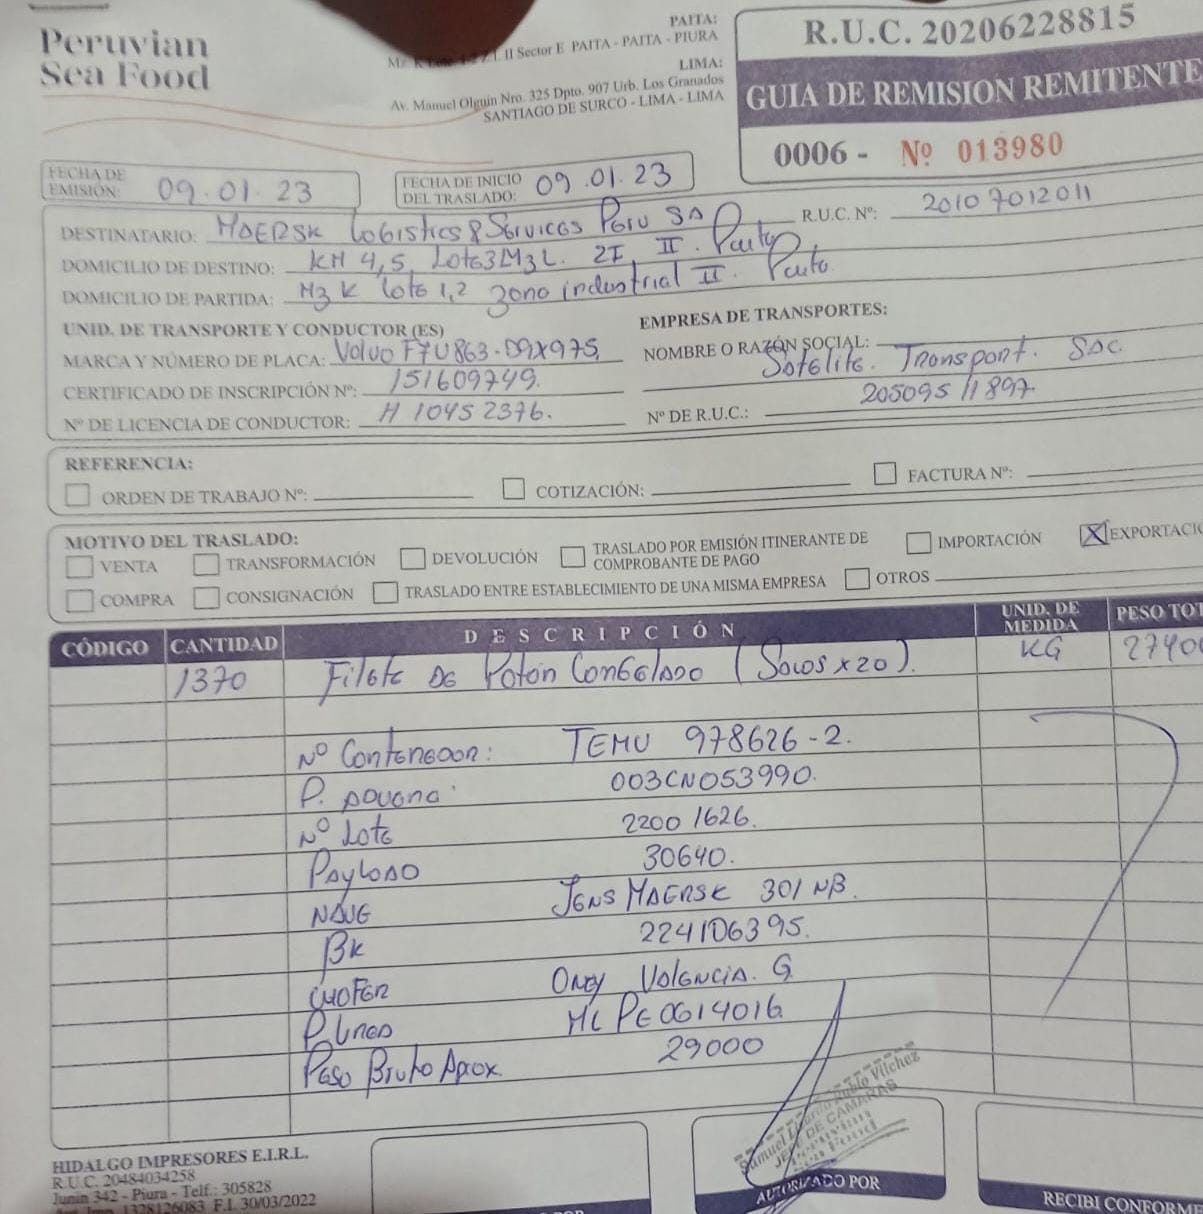 Peruvian
Sea Food
PAITA:
II Sector E PAITA - PAITA - PIURA
LIMA:
Av. Manuel Olguin Nro. 325 Dpto. 907 Urb. Los Granados
SANTIAGO DE SURCO - LIMA - LIMA
R.U.C. 20206228815
GUIA DE REMISION REMITENTE
0006 - Nº 013980
FECHA DE EMISIÓN: 09.01.23
FECHA DE INICIO DEL TRASLADO: 09.01.23
DESTINATARIO: MAERSK Logistics & Services Peru SA
R.U.C. Nº: 20107012011
DOMICILIO DE DESTINO: KM 4,5, Lote3 Mz L. ZI, II. Paita,
DOMICILIO DE PARTIDA: Mz K lote 1,2 zona industrial II. Paita
UNID. DE TRANSPORTE Y CONDUCTOR (ES)
MARCA Y NÚMERO DE PLACA: Volvo F7U863-D9X975
CERTIFICADO DE INSCRIPCIÓN Nº: 151609749.
Nº DE LICENCIA DE CONDUCTOR: H 10452376.
EMPRESA DE TRANSPORTES:
NOMBRE O RAZÓN SOCIAL: Satelite. Transport. SAC
Nº DE R.U.C.: 20509511897.
REFERENCIA:
ORDEN DE TRABAJO Nº:
COTIZACIÓN:
FACTURA Nº:
MOTIVO DEL TRASLADO:
VENTA
TRANSFORMACIÓN
DEVOLUCIÓN
TRASLADO POR EMISIÓN ITINERANTE DE
COMPROBANTE DE PAGO
IMPORTACIÓN
X EXPORTACIÓ
COMPRA
CONSIGNACIÓN
TRASLADO ENTRE ESTABLECIMIENTO DE UNA MISMA EMPRESA
OTROS
CÓDIGO CANTIDAD DESCRIPCIÓN UNID. DE MEDIDA PESO TOT
1370 Filete De Poton Congelado (Sacos x 20). KG 27400
Nº Contenedor: TEMU 978626-2.
P. Aduana: 003CN053990.
Nº Lote 22001626.
Payload 30640.
NAVE JENS MAERSK 301 NB.
BK 224106395.
CHOFER ONEY VALENCIA. G
P. Linea ML PE 0614016
Peso Bruto Aprox. 29000
Vilchez
JEFE DE CAMARAS
Peruvian
Sea Food
HIDALGO IMPRESORES E.I.R.L.
R.U.C. 20484034258
Junin 342 - Piura - Telf.: 305828
1328126083 F.I. 30/03/2022
AUTORIZADO POR
RECIBI CONFORME